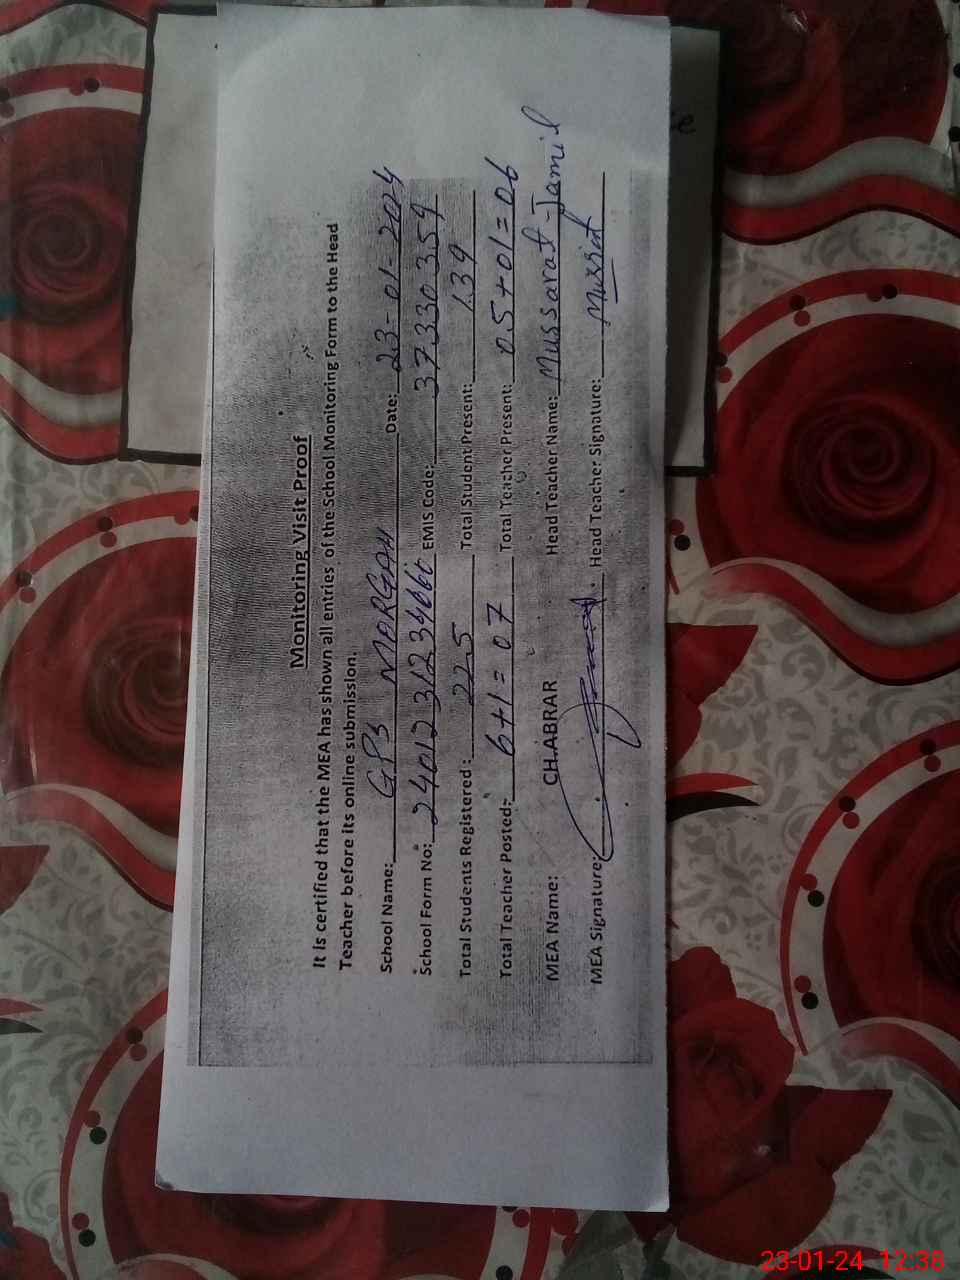 Monitoring Visit Proof
It Is certified that the MEA has shown all entries of the School Monitoring Form to the Head
Teacher before its online submission.
School Name: GPS MORGAH Date: 23-01-2024
School Form No: EMIS Code: 37330359
Total Students Registered: 225 Total Student Present: 139
Total Teacher Posted: 6+1=07 Total Teacher Present: 05+01=06
MEA Name: CH.ABRAR Head Teacher Name: Mussarat Jamil
MEA Signature: Head Teacher Signature:
23-01-24 12:38